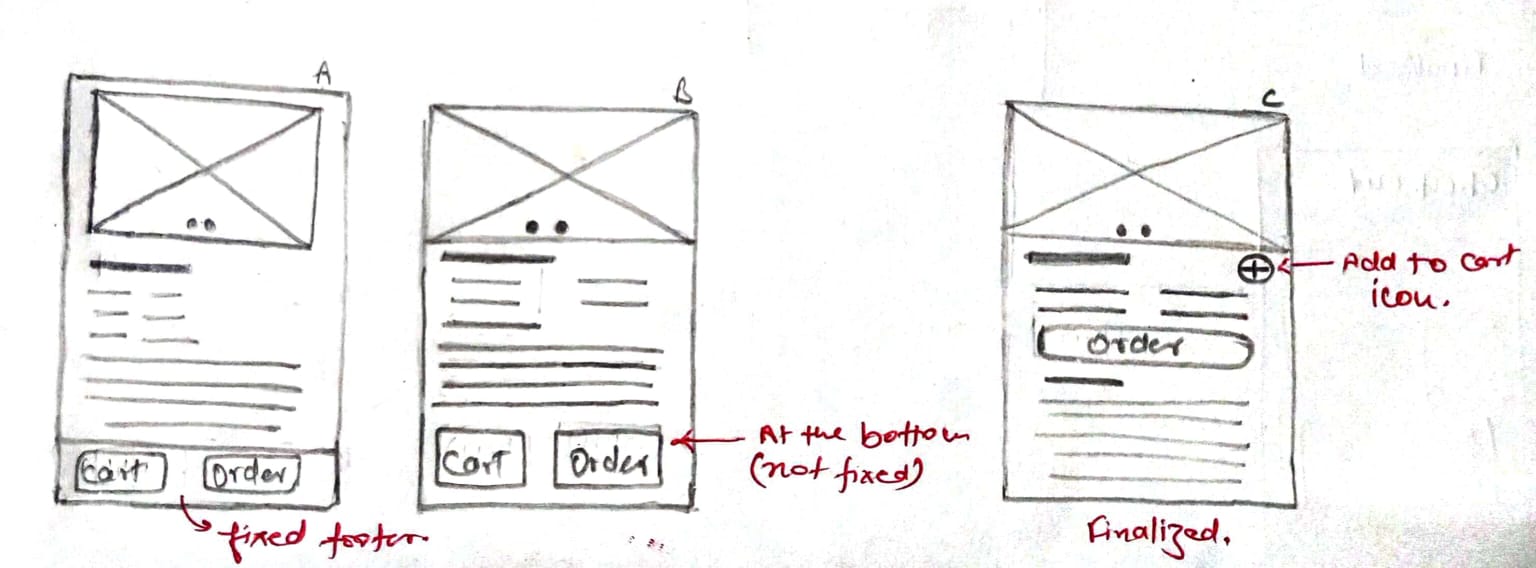 A
Cart
Order
fixed footer
B
Cart
Order
At the bottom
(not fixed)
C
Add to cart
icon.
Order
Finalized.